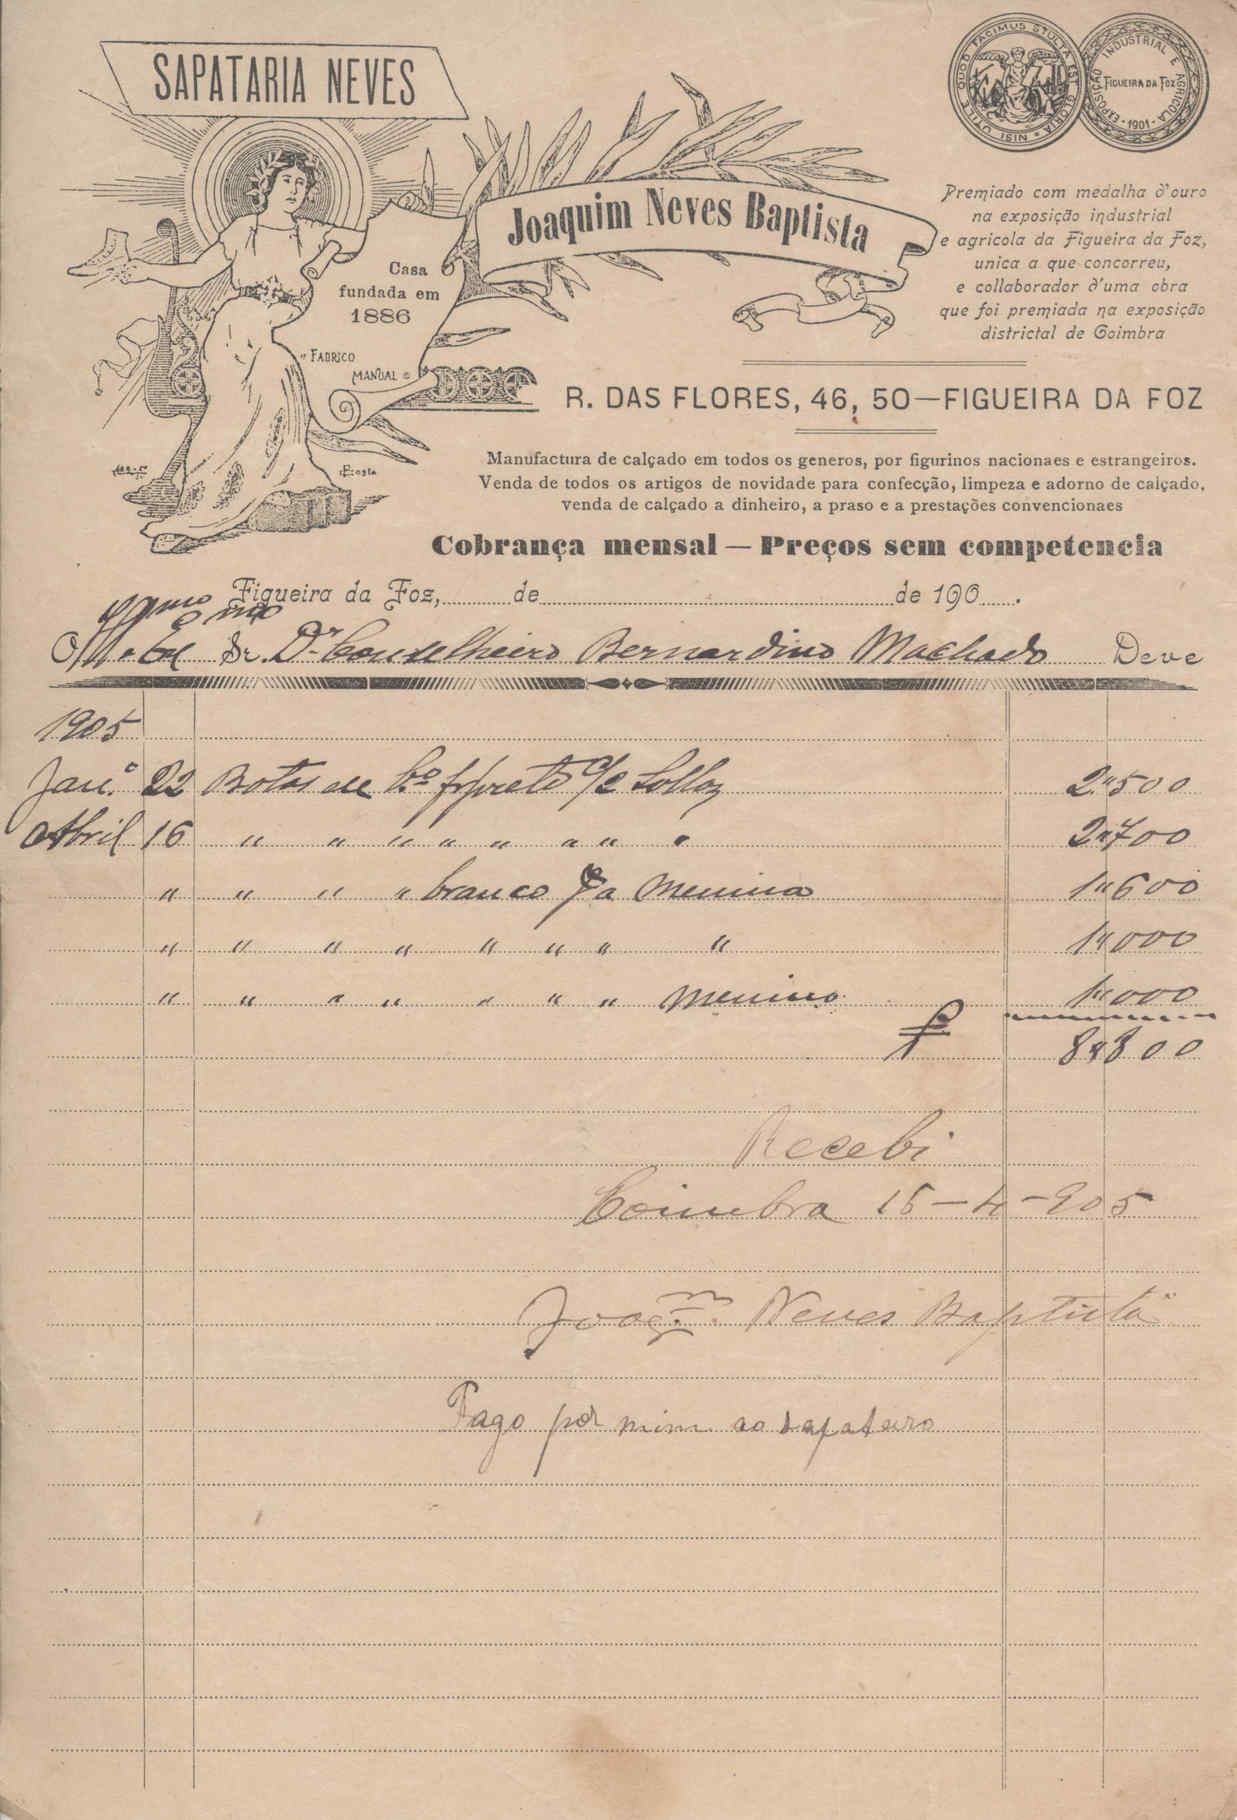 SAPATARIA NEVES
QUOD FACIMUS STULTA EST GLORIA NISI UTILE
EXPOSIÇÃO INDUSTRIAL E AGRICOLA
FIGUEIRA DA FOZ
1901
Joaquim Neves Baptista
Premiado com medalha d'ouro
na exposição industrial
e agricola da Figueira da Foz,
unica a que concorreu,
e collaborador d'uma obra
que foi premiada na exposição
districtal de Coimbra
Casa
fundada em
1886
FABRICO
MANUAL
R. DAS FLORES, 46, 50—FIGUEIRA DA FOZ
Manufactura de calçado em todos os generos, por figurinos nacionaes e estrangeiros.
Venda de todos os artigos de novidade para confecção, limpeza e adorno de calçado,
venda de calçado a dinheiro, a praso e a prestações convencionaes
Cobrança mensal — Preços sem competencia
Figueira da Foz, de de 190 .
O Sr. Dr Conselheiro Bernardino Machado Deve
1905
Jan.º 22 Botas de 2"500
Abril 16 " " " " " " " " 2"700
" " " " branco pa menina 1"600
" " " " " " " " 1"000
" " " " " " " menino 1"000
8"800
Recebi
Coimbra 15-4-905
Joaqm. Neves Baptista
Pago por mim ao sapateiro